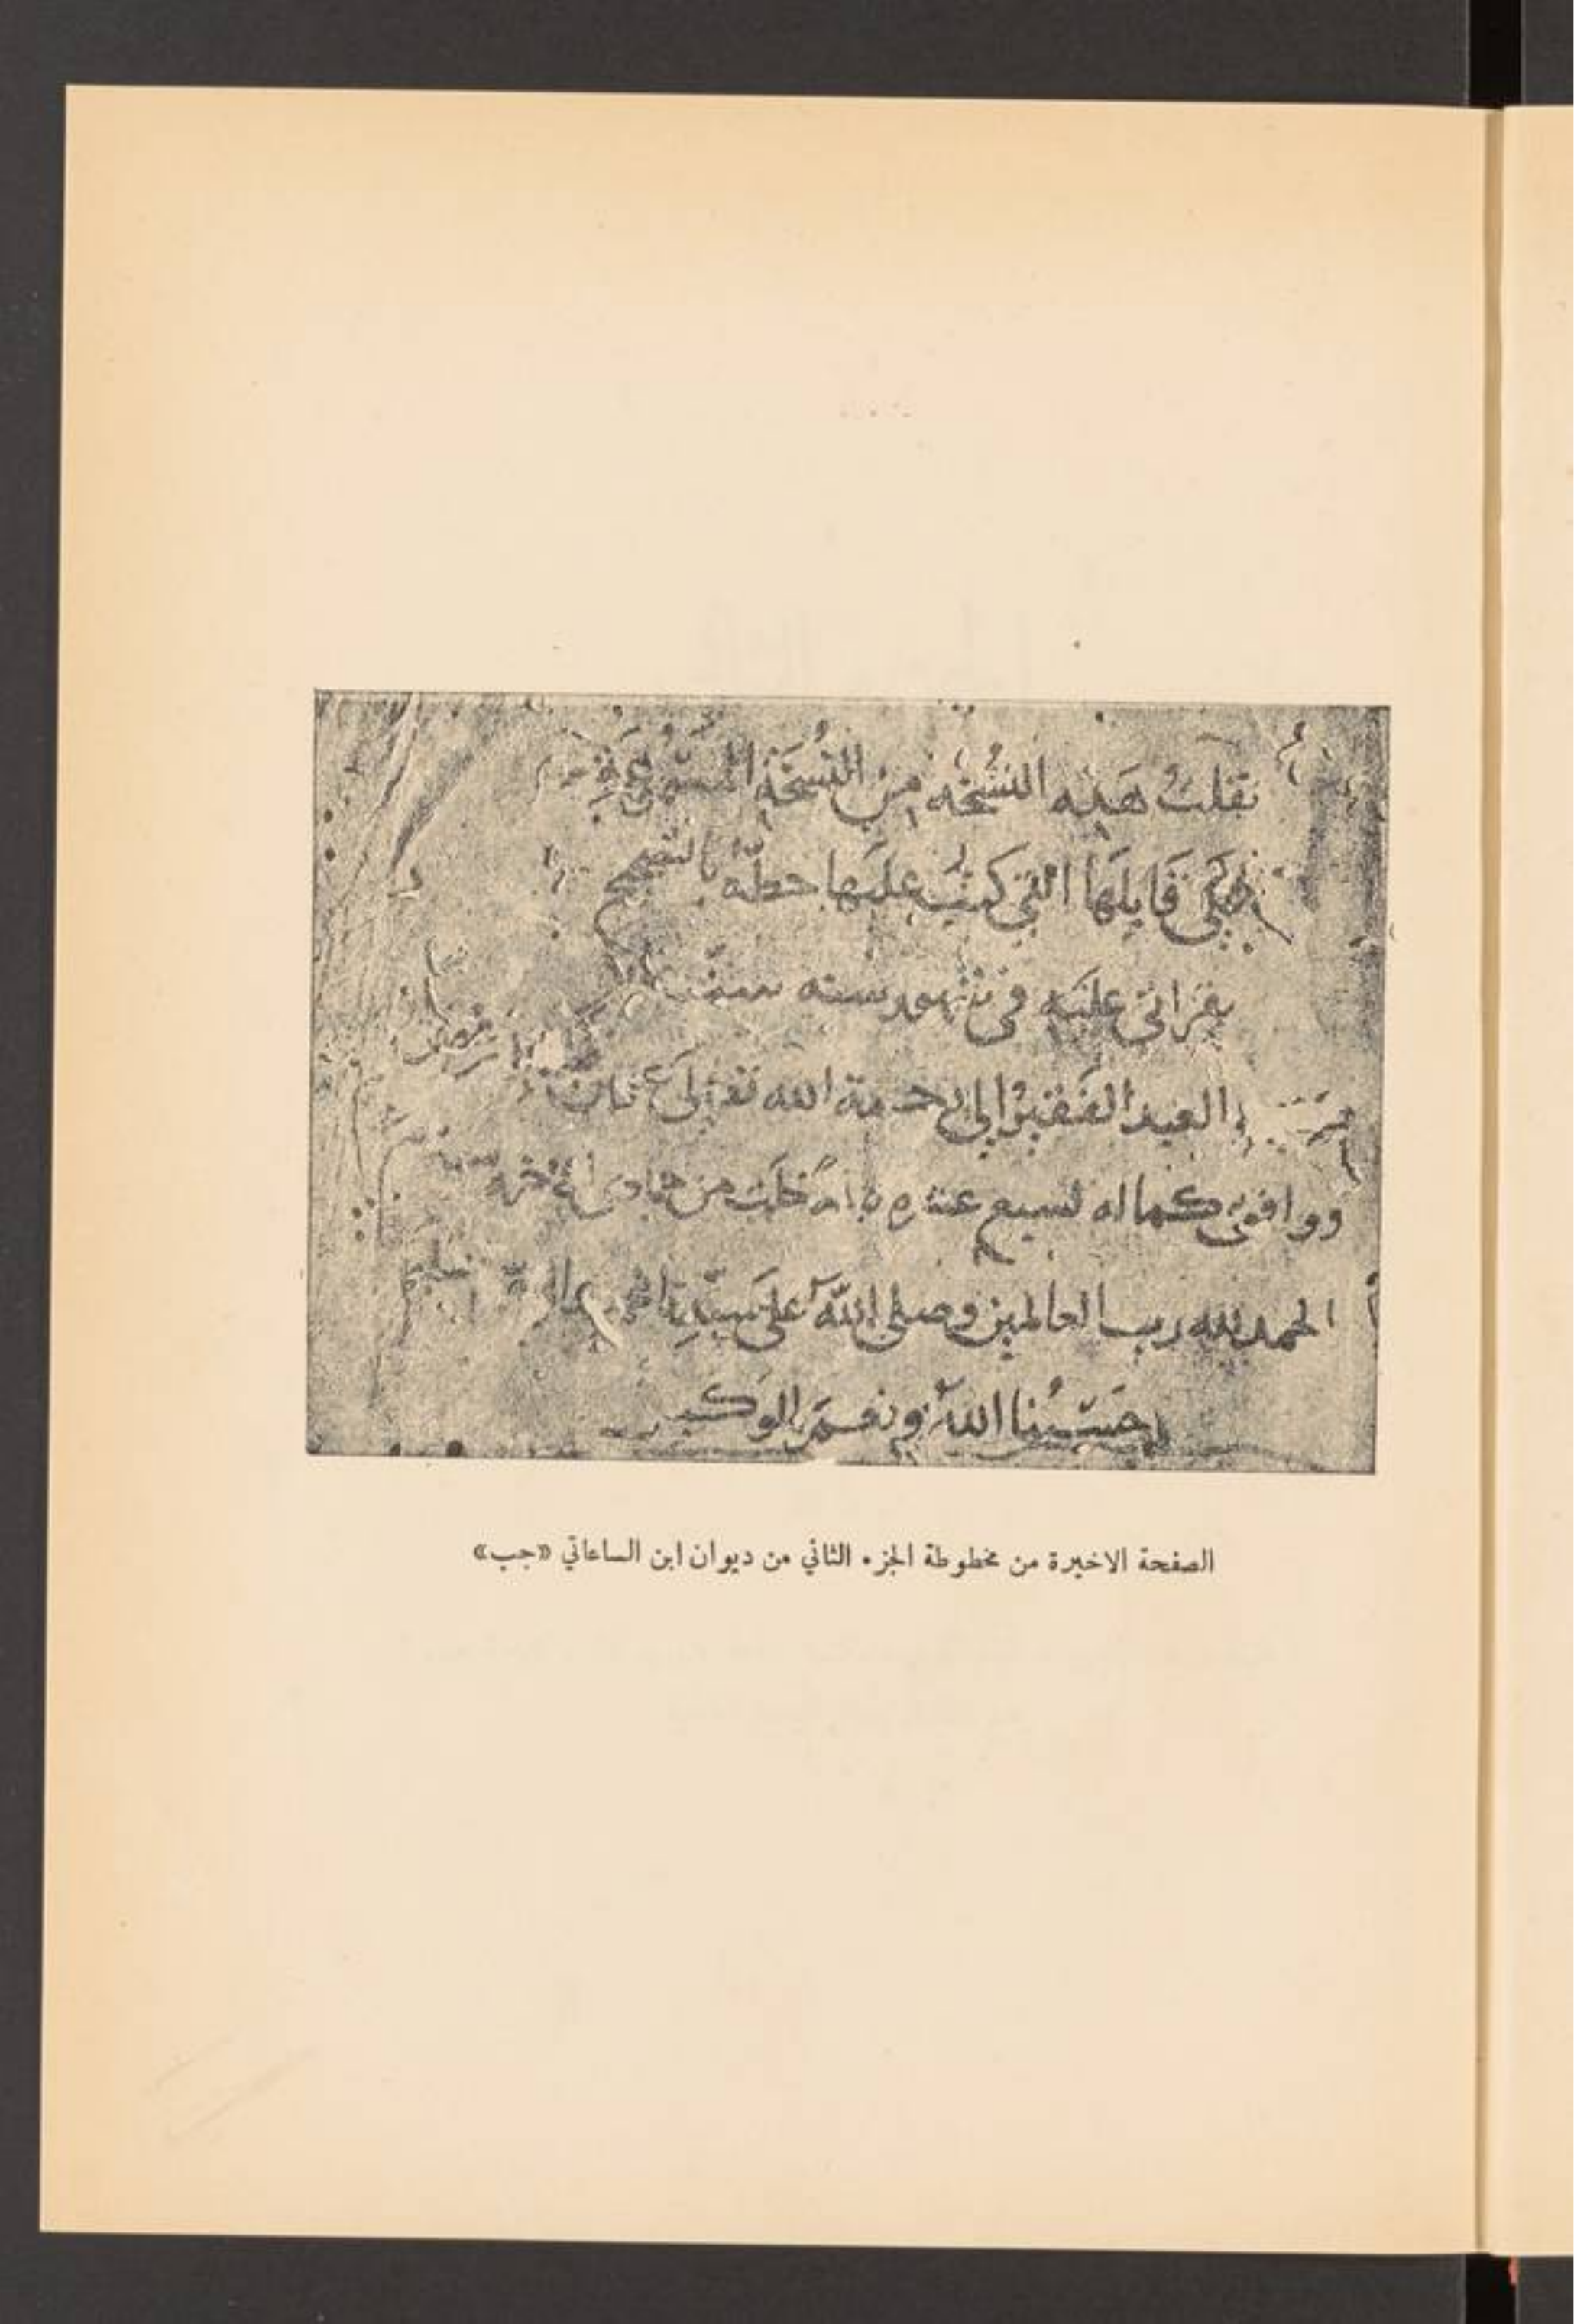 نقلت هذه النسخه من النسخة المسموعة
على قايلها التي كتب عليها خطه بالتصحيح
بقراتي عليه في شهور سنه ست
العبد الفقير الى رحمة الله تعالى
ووافق كماله لسبع عشرة ليلة خلت من جمادى الاخره
الحمد لله رب العالمين وصلى الله على سيدنا محمد
حسبنا الله ونعم الوكيل
الصفحة الاخيرة من مخطوطة الجزء الثاني من ديوان ابن الساعاتي «جب»